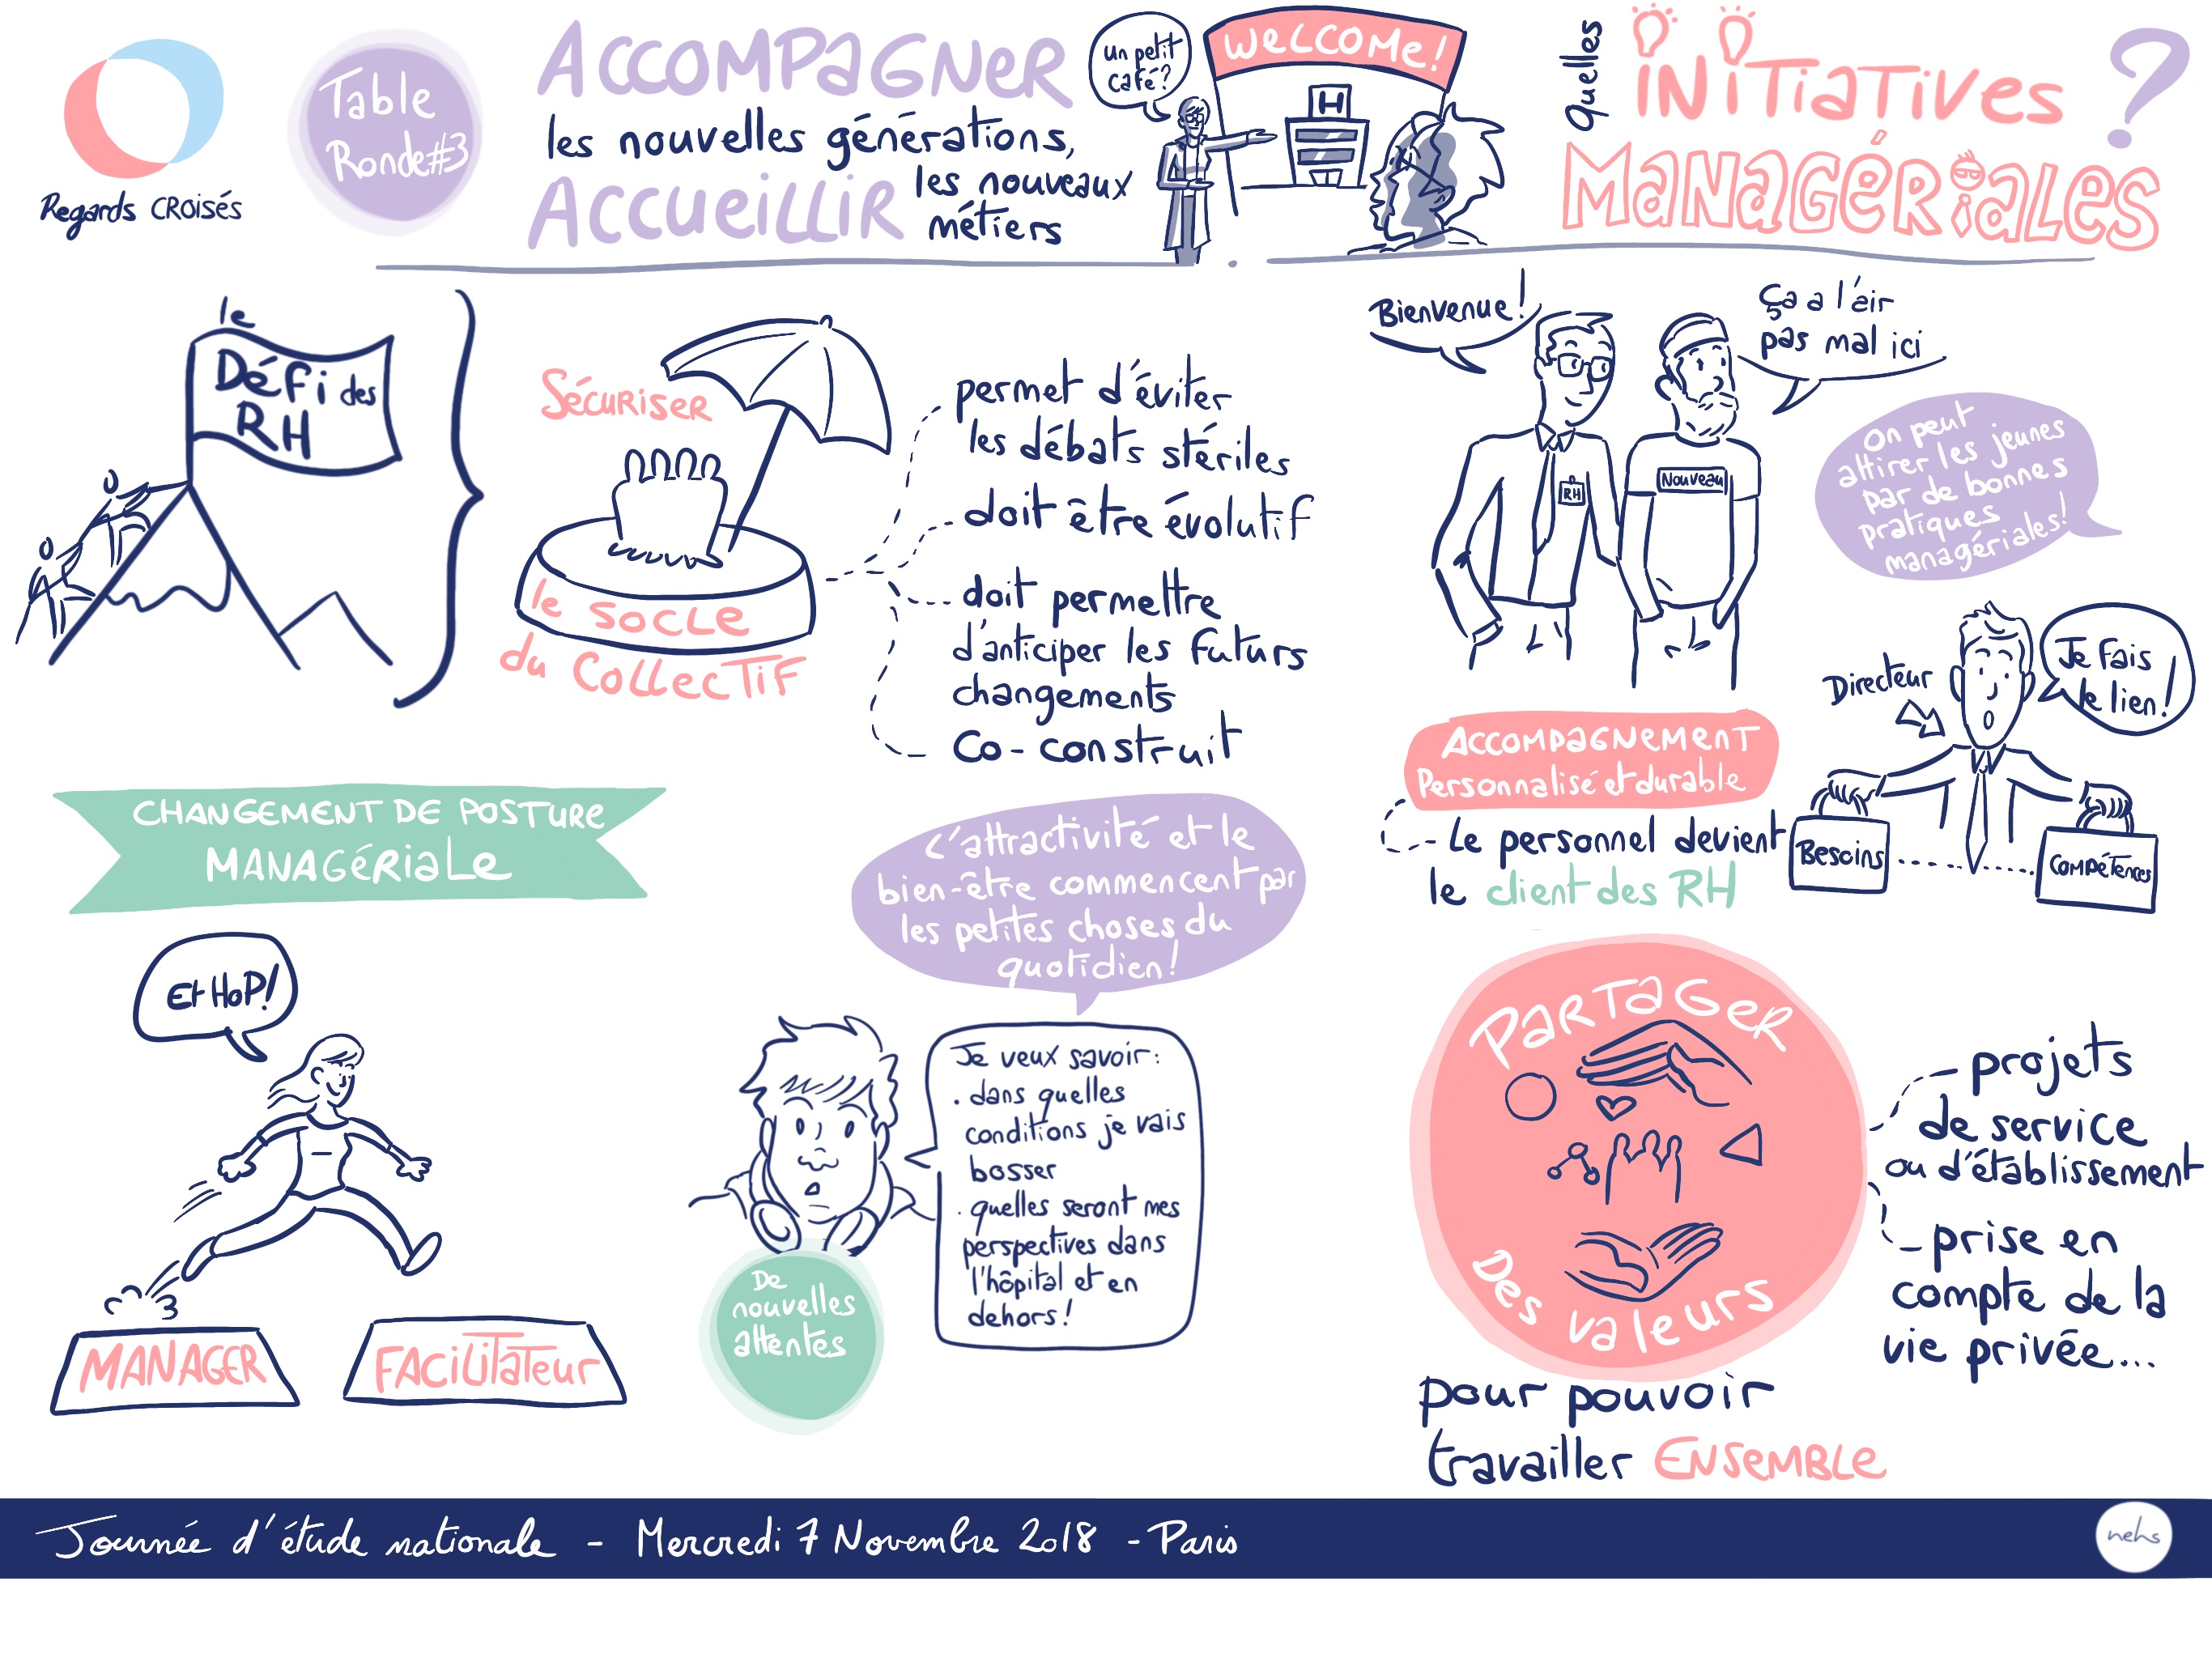 Regards CROisés
Table
Ronde#3
ACCOMPAGNER
les nouvelles générations,
ACCUEILLIR
les nouveaux
métiers
un petit
café?
WELCOME!
H
Quelles
INITIATIVES
MANAGÉRIALES
?
le
Défi des
RH
Sécuriser
le SOCLE
du COLLECTIF
permet d'éviter
les débats stériles
doit être évolutif
doit permettre
d'anticiper les futurs
changements
Co-construit
Bienvenue!
Ça a l'air
pas mal ici
RH
Nouveau
On peut
attirer les jeunes
par de bonnes
pratiques
managériales!
Directeur
Je fais
le lien!
Besoins
COMPÉTENCES
ACCOMPAGNEMENT
Personnalisé et durable
- Le personnel devient
le client des RH
CHANGEMENT DE POSTURE
MANAGÉRIALE
Et HOP!
MANAGER
FACILITATEUR
L'attractivité et le
bien-être commencent par
les petites choses du
quotidien!
Je veux savoir:
. dans quelles
conditions je vais
bosser
. quelles seront mes
perspectives dans
l'hôpital et en
dehors!
De
nouvelles
attentes
PARTAGER
Des valeurs
projets
de service
ou d'établissement
prise en
compte de la
vie privée...
pour pouvoir
travailler ENSEMBLE
Journée d'étude nationale - Mercredi 7 Novembre 2018 - Paris
nehs